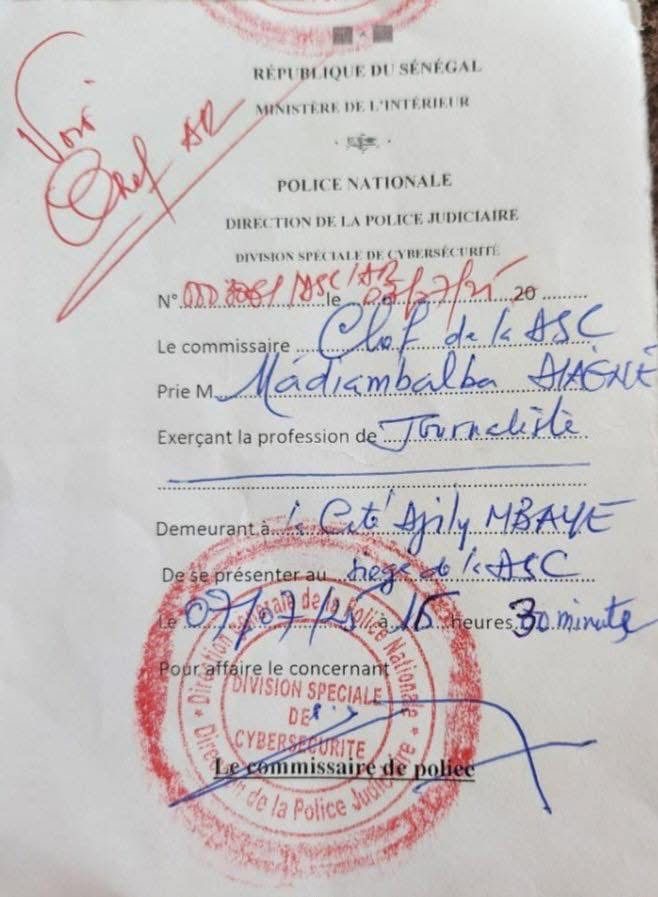 Voir
Chef AR
RÉPUBLIQUE DU SÉNÉGAL
MINISTÈRE DE L'INTÉRIEUR
POLICE NATIONALE
DIRECTION DE LA POLICE JUDICIAIRE
DIVISION SPÉCIALE DE CYBERSÉCURITÉ
N° /ASC/AR le 07/07/25 20
Le commissaire Chef de la ASC
Prie M. Madiambalba DIAGNE
Exerçant la profession de Journaliste
Demeurant à la Cité MBAYE
De se présenter au siège de la ASC
Le 07/07/25 à 15 heures 30 minute
Pour affaire le concernant
Direction Générale de la Police Nationale
DIVISION SPECIALE
DE
CYBERSECURITE
Direction de la Police Judiciaire
Le commissaire de police